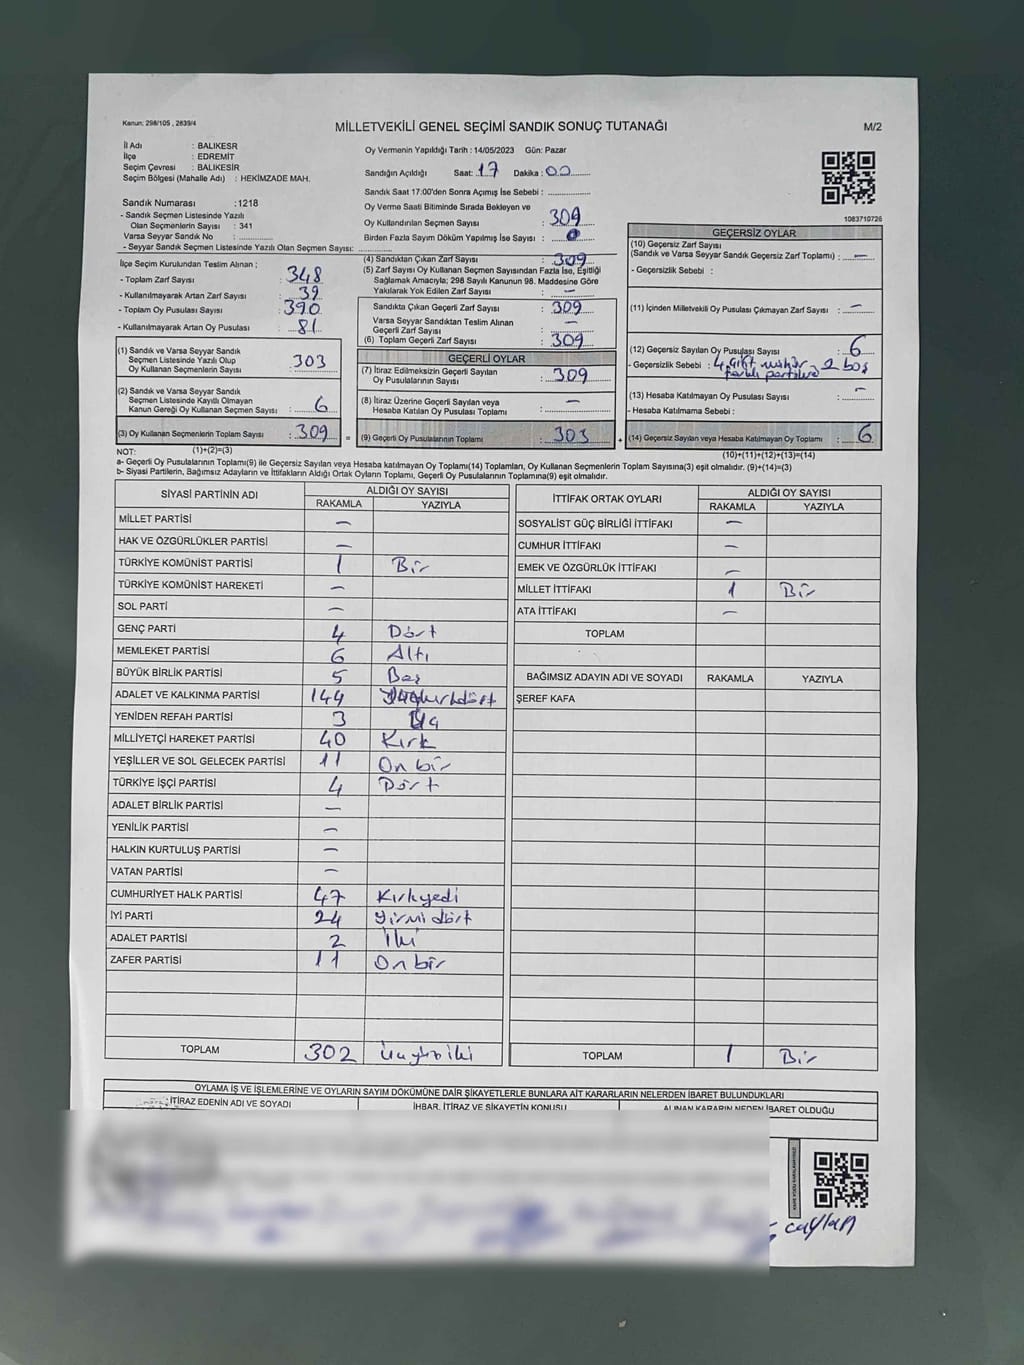 Kanun: 298/105 , 2839/4
MİLLETVEKİLİ GENEL SEÇİMİ SANDIK SONUÇ TUTANAĞI
M/2
İl Adı : BALIKESR
İlçe : EDREMİT
Seçim Çevresi : BALIKESİR
Seçim Bölgesi (Mahalle Adı) : HEKİMZADE MAH.
Sandık Numarası :1218
- Sandık Seçmen Listesinde Yazılı
Olan Seçmenlerin Sayısı : 341
Varsa Seyyar Sandık No :
- Seyyar Sandık Seçmen Listesinde Yazılı Olan Seçmen Sayısı:
Oy Vermenin Yapıldığı Tarih : 14/05/2023 Gün: Pazar
Sandığın Açıldığı Saat: 17 Dakika : 00
Sandık Saat 17:00'den Sonra Açımış İse Sebebi :
Oy Verme Saati Bitiminde Sırada Bekleyen ve
Oy Kullandırılan Seçmen Sayısı : 309
Birden Fazla Sayım Döküm Yapılmış İse Sayısı :
1083710726
İlçe Seçim Kurulundan Teslim Alınan ;
- Toplam Zarf Sayısı : 348
- Kullanılmayarak Artan Zarf Sayısı : 39
- Toplam Oy Pusulası Sayısı : 390
- Kullanılmayarak Artan Oy Pusulası : 81
(1) Sandık ve Varsa Seyyar Sandık
Seçmen Listesinde Yazılı Olup
Oy Kullanan Seçmenlerin Sayısı : 303
(2) Sandık ve Varsa Seyyar Sandık
Seçmen Listesinde Kayıtlı Olmayan
Kanun Gereği Oy Kullanan Seçmen Sayısı : 6
(3) Oy Kullanan Seçmenlerin Toplam Sayısı : 309
(4) Sandıktan Çıkan Zarf Sayısı : 309
(5) Zarf Sayısı Oy Kullanan Seçmen Sayısından Fazla İse, Eşitliği
Sağlamak Amacıyla; 298 Sayılı Kanunun 98. Maddesine Göre
Yakılarak Yok Edilen Zarf Sayısı : —
Sandıkta Çıkan Geçerli Zarf Sayısı : 309
Varsa Seyyar Sandıktan Teslim Alınan
Geçerli Zarf Sayısı : —
(6) Toplam Geçerli Zarf Sayısı : 309
GEÇERLİ OYLAR
(7) İtiraz Edilmeksizin Geçerli Sayılan
Oy Pusulalarının Sayısı : 309
(8) İtiraz Üzerine Geçerli Sayılan veya
Hesaba Katılan Oy Pusulası Toplamı : —
= (9) Geçerli Oy Pusulalarının Toplamı : 303
GEÇERSİZ OYLAR
(10) Geçersiz Zarf Sayısı
(Sandık ve Varsa Seyyar Sandık Geçersiz Zarf Toplamı) : —
- Geçersizlik Sebebi :
(11) İçinden Milletvekili Oy Pusulası Çıkmayan Zarf Sayısı : —
(12) Geçersiz Sayılan Oy Pusulası Sayısı : 6
- Geçersizlik Sebebi : 4 çift mühür, 2 boş
farklı partilere
(13) Hesaba Katılmayan Oy Pusulası Sayısı : —
- Hesaba Katılmama Sebebi :
+ (14) Geçersiz Sayılan veya Hesaba Katılmayan Oy Toplamı : 6
NOT: (1)+(2)=(3)
(10)+(11)+(12)+(13)=(14)
a- Geçerli Oy Pusulalarının Toplamı(9) ile Geçersiz Sayılan veya Hesaba katılmayan Oy Toplamı(14) Toplamları, Oy Kullanan Seçmenlerin Toplam Sayısına(3) eşit olmalıdır. (9)+(14)=(3)
b- Siyasi Partilerin, Bağımsız Adayların ve İttifakların Aldığı Ortak Oyların Toplamı, Geçerli Oy Pusulalarının Toplamına(9) eşit olmalıdır.
SİYASİ PARTİNİN ADI ALDIĞI OY SAYISI
RAKAMLA YAZIYLA
MİLLET PARTİSİ —
HAK VE ÖZGÜRLÜKLER PARTİSİ —
TÜRKİYE KOMÜNİST PARTİSİ 1 Bir
TÜRKİYE KOMÜNİST HAREKETİ —
SOL PARTİ —
GENÇ PARTİ 4 Dört
MEMLEKET PARTİSİ 6 Altı
BÜYÜK BİRLİK PARTİSİ 5 Beş
ADALET VE KALKINMA PARTİSİ 144
YENİDEN REFAH PARTİSİ 3 Üç
MİLLİYETÇİ HAREKET PARTİSİ 40 Kırk
YEŞİLLER VE SOL GELECEK PARTİSİ 11 Onbir
TÜRKİYE İŞÇİ PARTİSİ 4 Dört
ADALET BİRLİK PARTİSİ —
YENİLİK PARTİSİ —
HALKIN KURTULUŞ PARTİSİ —
VATAN PARTİSİ —
CUMHURİYET HALK PARTİSİ 47 Kırkyedi
İYİ PARTİ 24 Yirmidört
ADALET PARTİSİ 2 İki
ZAFER PARTİSİ 11 Onbir
TOPLAM 302 Üçyüziki
İTTİFAK ORTAK OYLARI ALDIĞI OY SAYISI
RAKAMLA YAZIYLA
SOSYALİST GÜÇ BİRLİĞİ İTTİFAKI —
CUMHUR İTTİFAKI —
EMEK VE ÖZGÜRLÜK İTTİFAKI —
MİLLET İTTİFAKI 1 Bir
ATA İTTİFAKI —
TOPLAM
BAĞIMSIZ ADAYIN ADI VE SOYADI RAKAMLA YAZIYLA
ŞEREF KAFA
TOPLAM 1 Bir
OYLAMA İŞ VE İŞLEMLERİNE VE OYLARIN SAYIM DÖKÜMÜNE DAİR ŞİKAYETLERLE BUNLARA AİT KARARLARIN NELERDEN İBARET BULUNDUKLARI
İTİRAZ EDENİN ADI VE SOYADI İHBAR, İTİRAZ VE ŞİKAYETİN KONUSU ALINAN KARARIN NEDEN İBARET OLDUĞU
caylan